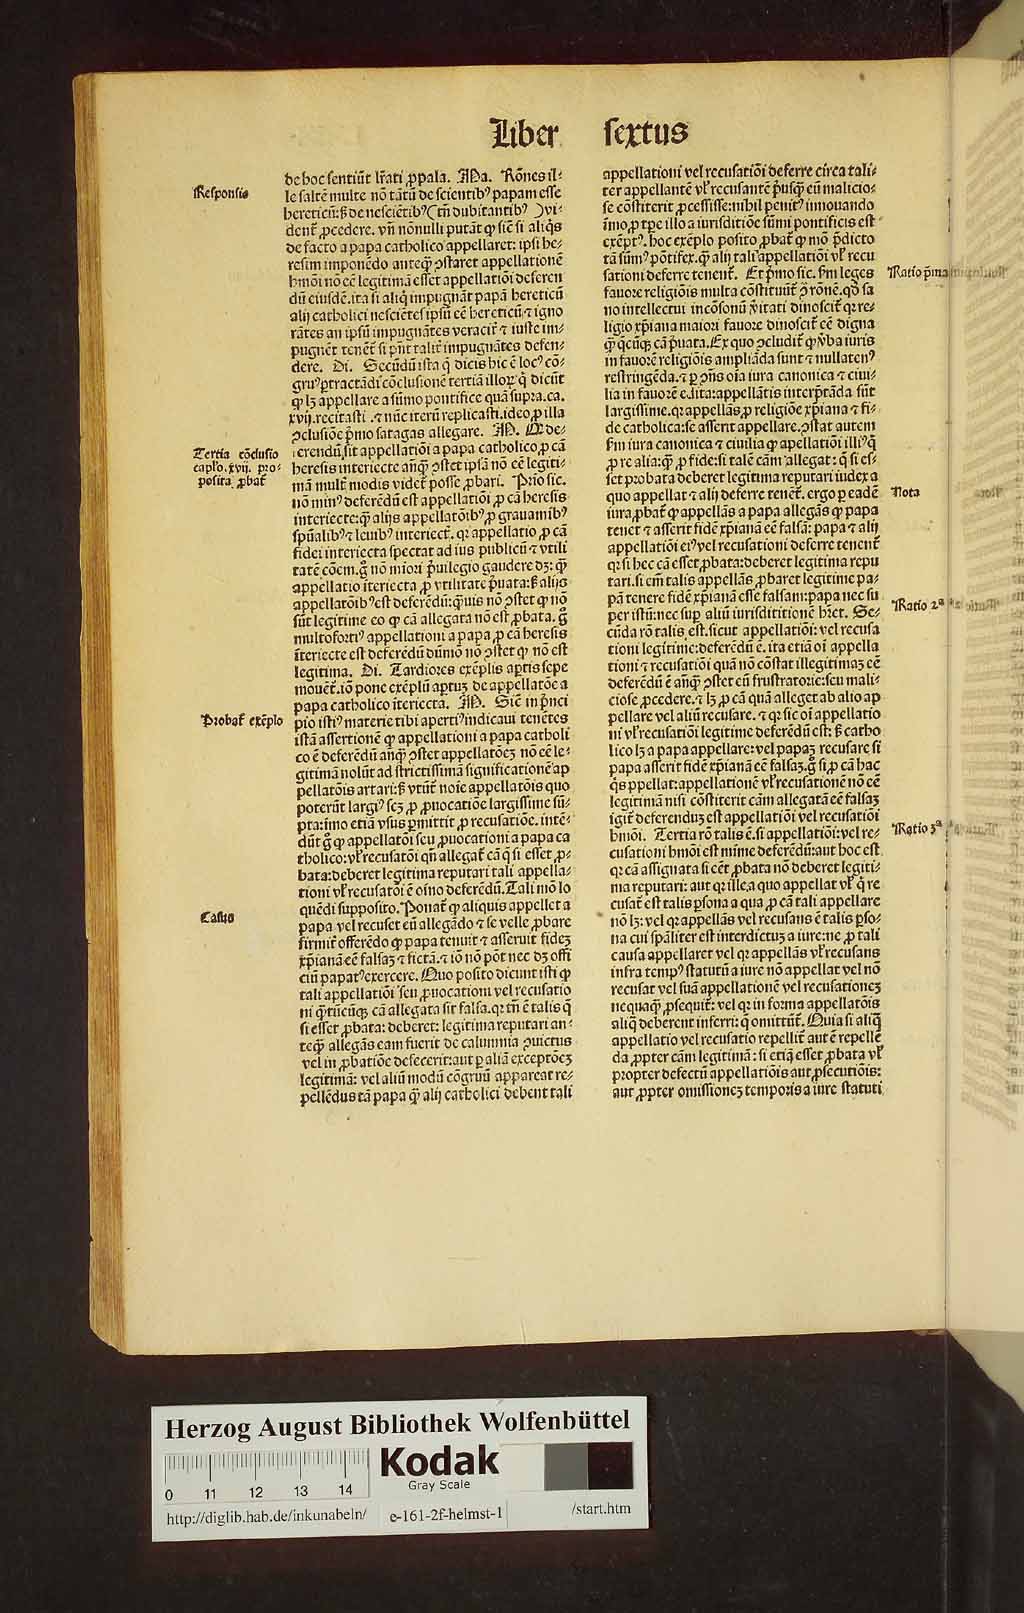 Liber sextus
Responsio
Tertia cōclusio
caplo. xvij. pro-
posita ꝓbat̄
Probat̄ exēplo
Casus
de hoc sentiūt lr̄ati ꝓpala. Ma. Rōnes il-
le saltē multe nō tātū de scientibꝰ papam esse
hereticū: sꝫ de nesciētibꝰ (tn̄ dubitantibꝰ) vi-
dent̄ ꝓcedere. vn̄ nōnulli putāt ꝙ sic̄ si aliq̇s
de facto a papa catholico appellaret: ipsi he-
resim imponēdo anteq̄ꝫ ꝯstaret appellationē
hmōi nō eē legitimā esset appellatiōi deferen
dū eiusdē. ita si aliq̇ impugnāt papā hereticū
alij catholici nescietes ipsū eē hereticū ⁊ igno
rātes an ipsū impugnātes veracit̄ ⁊ iuste im-
pugnēt tenēt̄ si pn̄t talit̄ impugnātes defen-
dere. Di. Secūdū ista q̄ dicis hic ē locꝰ cō-
gruꝰ ꝑtractādi cōclusionē tertiā illoꝝ q̇ dicūt
ꝙ lꝫ appellare a sūmo pontifice quā supra. ca.
xvij. recitasti. ⁊ nūc iterū replicasti. ideo ꝓ illa
ꝯclusiōe p̄mo satagas allegare. M. Q de-
ferendū sit appellatiōi a papa catholico ꝓ cā
heresis interiecte anq̄ꝫ ꝯstet ipsā nō eē legiti-
mā mult̄ modis videt̄ posse ꝓbari. Prīo sic.
nō minꝰ deferēdū est appellatiōi ꝓ cā heresis
interiecte: q̄ꝫ alijs appellatōibꝰ ꝓ grauamībꝰ
spūalibꝰ ⁊ leuibꝰ interiect̄. qꝛ appellatio ꝓ cā
fidei interiecta spectat ad ius publicū ⁊ vtili
tatē cōem. g̊ nō miori p̄uilegio gaudere dꝫ: q̄ꝫ
appellatio īteriecta ꝓ vtilitate p̄uata: sꝫ alijs
appellatōibꝰ est deferēdū: q̄uis nō ꝯstet ꝙ nō
sūt legitime eo ꝙ cā allegata nō est ꝓbata. g̊
multofortiꝰ appellationi a papa ꝓ cā heresis
īteriecte est deferēdū dūmō nō ꝯstet ꝙ nō est
legitima. Di. Tardiores exēplis aptis sepe
mouēt̄. iō pone exēplū aptuꝫ de appellatōe a
papa catholico īteriecta. M. Sic̄ in p̄nci
pio istiꝰ materie tibi apertiꝰ indicaui tenētes
istā assertionē ꝙ appellationi a papa catholi
co ē deferēdū anq̄ꝫ ꝯstet appellatōeꝫ nō eē le-
gitimā nolūt ad strictissimā significationē ap
pellatōis artari: sꝫ vtūt̄ noīe appellatōis quo
poterūt largiꝰ seꝫ ꝓ ꝓuocatiōe largissime sū-
pta: īmo etiā vsus ꝑmittit ꝓ recusatiōe. intē-
dūt g̊ ꝙ appellatōi seu ꝓuocationi a papa ca
tholico: vl̄ recusatōi qn̄ allegat̄ cā q̄ si esset ꝓ-
bata: deberet legitima reputari tali appella-
tioni vl̄ recusatōi ē oīno deferēdū. Tali mō lo
quēdi supposito. Ponat̄ ꝙ aliquis appellet a
papa vel recuset eū allegādo ⁊ se velle ꝓbare
firmit̄ offerēdo ꝙ papa tenuit ⁊ asseruit fideꝫ
xp̄ianā eē falsaꝫ ⁊ fictā. ⁊ iō nō pōt nec dꝫ offi
ciū papatꝰ exercere. Quo posito dicunt isti ꝙ
tali appellatiōi seu ꝓuocationi vel recusatio
ni q̄ntūcūqꝫ cā allegata sit falsa. qꝛ tn̄ ē talis q̄
si esset ꝓbata: deberet: legitima reputari an-
teq̄ꝫ allegās eam fuerit de calumnia ꝯuictus
vel in ꝓbatiōe defecerit: aut ꝑ aliā exceptōeꝫ
legitimā: vel aliū modū cōgruū appareat re-
pellēdus tā papa q̄ꝫ alij catholici debent tali
appellationi vel recusatiōi deferre circa tali-
ter appellantē vl̄ recusantē p̄usq̄ꝫ eū malicio-
se cōstiterit ꝓcessisse: nihil penitꝰ innouando
īmo ꝓ tꝑe illo a iurisditiōe sūmi pontificis est
exēptꝰ. hoc exēplo posito ꝓbat̄ ꝙ mō p̄dicto
tā sūmꝰ pōtifex. q̄ꝫ alij tali appellatiōi vl̄ recu
sationi deferre tenent̄. Et p̄mo sic. Sm̄ leges
fauore religiōis multa cōstituūt̄ ꝯ rōnē. qd̓ sa
no intellectui incōsonū v̄itati dinoscit̄ qꝛ re-
ligio xp̄iana maiori fauore dinoscit̄ eē digna
q̄ꝫ q̄cūqꝫ cā p̄uata. Ex quo ꝯcludit̄ ꝙ v̄ba iuris
in fauorē religiōis ampliāda sunt ⁊ nullatenꝰ
restringēda. ⁊ ꝑ ꝯn̄s oīa iura canonica ⁊ ciui-
lia in fauorē edita: appellātis interp̄tāda sūt
largissime. qꝛ appellās ꝓ religiōe xp̄iana ⁊ fi-
de catholica: se asserit appellare. ꝯstat autem
sm̄ iura canonica ⁊ ciuilia ꝙ apellatiōi illiꝰ q̇
ꝓ re alia: q̄ꝫ ꝓ fide: si talē cām allegat: q̄ si es-
set probata deberet legitima reputari iudex a
quo appellat ⁊ alij deferre tenēt̄. ergo ꝑ eadē
iura ꝓbat̄ ꝙ appellās a papa allegās ꝙ papa
tenet ⁊ asserit fidē xp̄ianā eē falsā: papa ⁊ alij
appellatiōi eiꝰ vel recusationi deferre tenent̄
qꝛ si hec cā esset ꝓbata: deberet legitima repu
tari. si em̄ talis appellās ꝓbaret legitime pa-
pā tenere fidē xp̄ianā esse falsam: papa nec su
per istū: nec suꝑ aliū iurisdititionē hꝛet. Se-
cūda rō talis est. sicut appellatiōi: vel recusa
tioni legitime: deferēdū ē. ita etiā oī appella
tioni ⁊ recusatiōi quā nō cōstat illegitimaꝫ eē
deferēdū ē anq̄ꝫ ꝯstet eū frustratorie: seu mali-
ciose ꝓcedere. ⁊ lꝫ ꝓ cā quā alleget ab alio ap
pellare vel aliū recusare. ⁊ qꝛ sic oī appellatio
ni vl̄ recusatiōi legitime deferēdū est: sꝫ catho
lico lꝫ a papa appellare: vel papaꝫ recusare si
papa asserit fidē xp̄ianā eē falsaꝫ. g̊ si ꝓ cā hac
q̇s ꝓpellat: appellationē vl̄ recusationē nō eē
legitimā nisi cōstiterit cām allegatā eē falsaꝫ
igit̄ deferenduꝫ est appellatiōi vel recusatiōi
hmōi. Tertia rō talis ē. si appellatiōi: vel re-
cusationi hmōi est mīme deferēdū: aut hoc est
qꝛ cā assignata si eēt ꝓbata nō deberet legiti-
ma reputari: aut qꝛ ille, a quo appellat̄ vl̄ q̇ re
cusat̄ est talis ꝑsona a qua ꝓ cā tali appellare
nō lꝫ: vel qꝛ appellās vel recusans ē talis ꝑso-
na cui spāliter est interdictuꝫ a iure: ne ꝓ tali
causa appellaret vel qꝛ appellās vl̄ recusans
infra tempꝰ statutū a iure nō appellat vel nō
recusat vel suā appellationē vel recusationeꝫ
nequaq̄ꝫ ꝓsequit̄: vel qꝛ in forma appellatōis
aliq̄ deberent inferri: q̄ omittūt̄. Quia si aliq̄
appellatio vel recusatio repellit̄ aut ē repellē
da ꝓpter cām legitimā: si etiq̄ esset ꝓbata vl̄
propter defectū appellatiōis aut ꝓsecutiōis:
aut ꝓpter omissioneꝫ temporis a iure statuti
Ratio p̄ma
Nota
Ratio 2ª
Ratio 3ª
Herzog August Bibliothek Wolfenbüttel
Kodak
Gray Scale
0 11 12 13 14
http://diglib.hab.de/inkunabeln/ e-161-2f-helmst-1 /start.htm